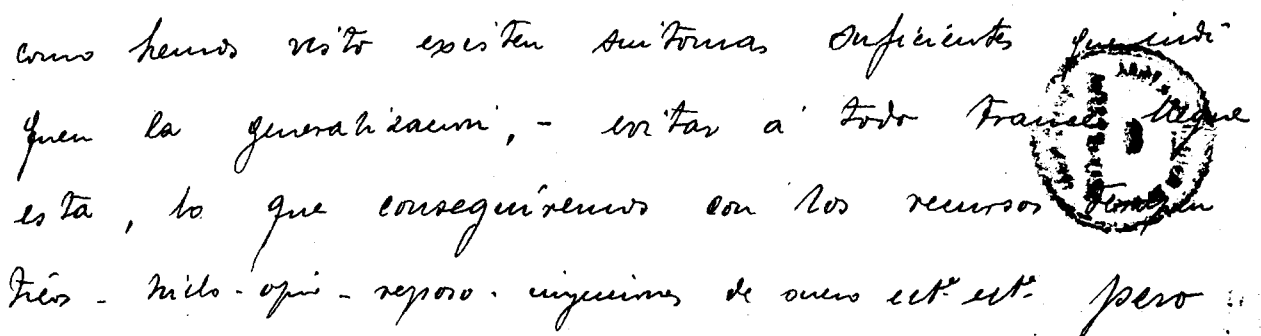 como hemos visto existen sintomas suficientes que indi
quen la generalización, - evitar a todo trance llegue
esta, lo que conseguiremos con los recursos terapeu
ticos - hielo - opio - reposo - inyecciones de suero ectª ectª pero